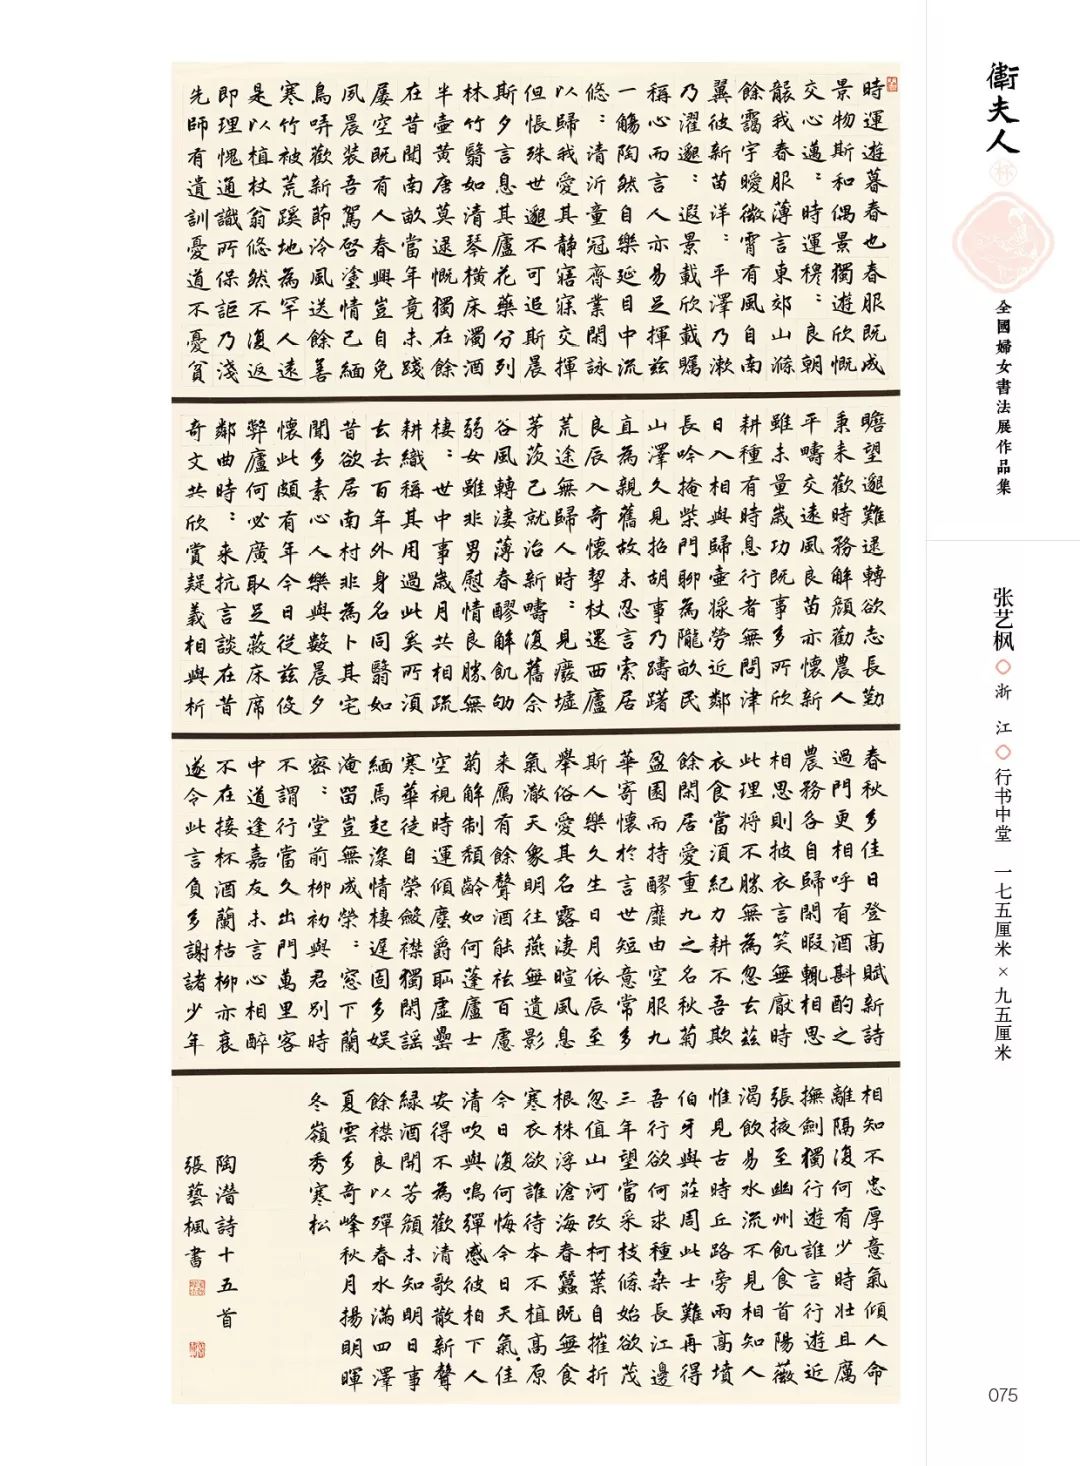 時運遊暮春也春服既成
景物斯和偶景獨遊欣慨
交心邁：時運穆：良朝
襲我春服薄言東郊山滌
餘靄宇曖微霄有風自南
翼彼新苗洋：平澤乃漱
乃濯邈：遐景載欣載矚
稱心而言人亦易足揮茲
一觴陶然自樂延目中流
悠：清沂童冠齊業閑詠
以歸我愛其靜寤寐交揮
但悵殊世邈不可追斯晨
斯夕言息其廬花藥分列
林竹翳如清琴橫床濁酒
半壺黃唐莫逮慨獨在餘
在昔聞南畝當年竟未踐
屢空既有人春興豈自免
夙晨裝吾駕啓塗情已緬
鳥哢歡新節泠風送餘善
寒竹被荒蹊地為罕人遠
是以植杖翁悠然不復返
即理愧通識所保詎乃淺
先師有遺訓憂道不憂貧
瞻望邈難逮轉欲志長勤
秉耒歡時務解顏勸農人
平疇交遠風良苗亦懷新
雖未量歲功既事多所欣
耕種有時息行者無問津
日入相與歸壺漿勞近鄰
長吟掩柴門聊為隴畝民
山澤久見招胡事乃躊躇
直為親舊故未忍言索居
良辰入奇懷挈杖還西廬
荒途無歸人時：見廢墟
茅茨已就治新疇復舊佘
谷風轉淒薄春醪解飢劬
弱女雖非男慰情良勝無
棲：世中事歲月共相疏
耕織稱其用過此奚所須
去去百年外身名同翳如
昔欲居南村非為卜其宅
聞多素心人樂與數晨夕
懷此頗有年今日從茲役
弊廬何必廣取足蔽床席
鄰曲時：来抗言談在昔
奇文共欣賞疑義相與析
春秋多佳日登高賦新詩
過門更相呼有酒斟酌之
農務各自歸閑暇輒相思
相思則披衣言笑無厭時
此理將不勝無為忽去茲
衣食當須紀力耕不吾欺
餘閑居愛重九之名秋菊
盈園而持醪靡由空服九
華寄懷於言世短意常多
斯人樂久生日月依辰至
舉俗愛其名露淒暄風息
氣澈天象明往燕無遺影
来雁有餘聲酒能祛百慮
菊解制頹齡如何蓬廬士
空視時運傾塵爵恥虛罍
寒華徒自榮斂襟獨閑謠
緬焉起深情棲遲固多娛
淹留豈無成榮：窓下蘭
密：堂前柳初與君別時
不謂行當久出門萬里客
中道逢嘉友未言心相醉
不在接杯酒蘭枯柳亦衰
遂令此言負多謝諸少年
相知不忠厚意氣傾人命
離隔復何有少時壯且厲
撫劍獨行遊誰言行遊近
張掖至幽州飢食首陽薇
渴飲易水流不見相知人
惟見古時丘路旁兩高墳
伯牙與莊周此士難再得
吾行欲何求種桑長江邊
三年望當采枝條始欲茂
忽值山河改柯葉自摧折
根株浮滄海春蠶既無食
寒衣欲誰待本不植高原
今日復何悔今日天氣佳
清吹與鳴彈感彼柏下人
安得不為歡清歌散新聲
綠酒開芳顏未知明日事
餘襟良以殫春水滿四澤
夏雲多奇峰秋月揚明暉
冬嶺秀寒松
陶潛詩十五首
張藝楓書
衛夫人
杯
全國婦女書法展作品集
张艺枫 浙江 行书中堂 一七五厘米×九五厘米
075